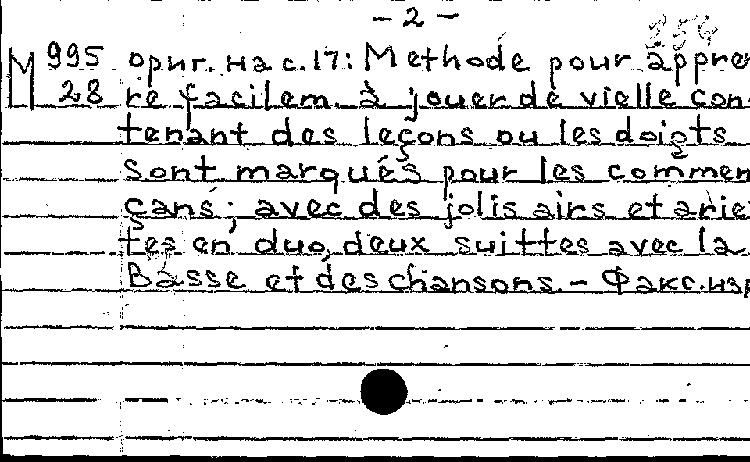 - 2 -
254
М 995 ориг. на с.17: Methode pour appre
28 re facilem. à jouer de vielle con-
tenant des leçons ou les doigts
sont marqués pour les commen
çans; avec des jolis airs et ariet
tes en duo, deux suittes avec la
Basse et des chansons. - Факс. изд